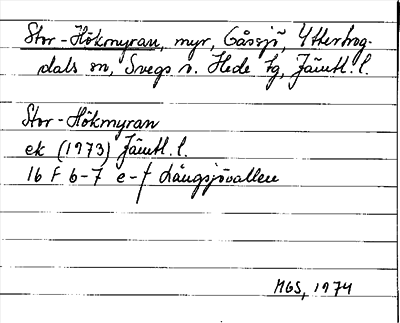 Stor-Hökmyran, myr, Gåssjö, Ytterhog-
dals sn, Svegs o. Hede tg, Jämtl. l.
Stor-Hökmyran
ek (1973) Jämtl. l.
16 F 6-7 e-f Längsjövallen
MGS, 1974